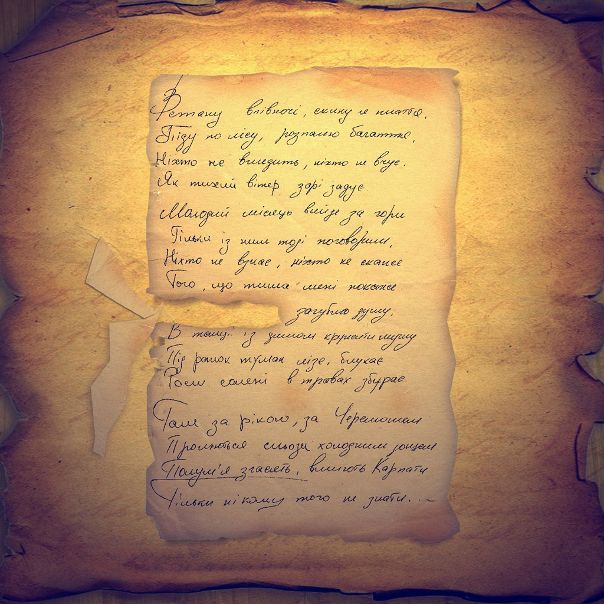 Встану впівночі, скину е плаття,
Піду по лісу, розпалю багаття,
Ніхто не вгледить, ніхто не вчує.
Як тихий вітер зорі задує
Молодий місяць вийде за гори
Тільки із ним тоді поговорим,
Ніхто не взнає, ніхто не скаже
Того, що тиша мені покаже
загублю душу,
В танці із димом кружати мушу
Під ранок туман лізе, блукає
Роси солені в травах збирає
Там за рікою, за Черемошем
Проллються сльози холодним дощем
Полум'я згасять, вмиють Карпати
Тільки нікому того не знати...